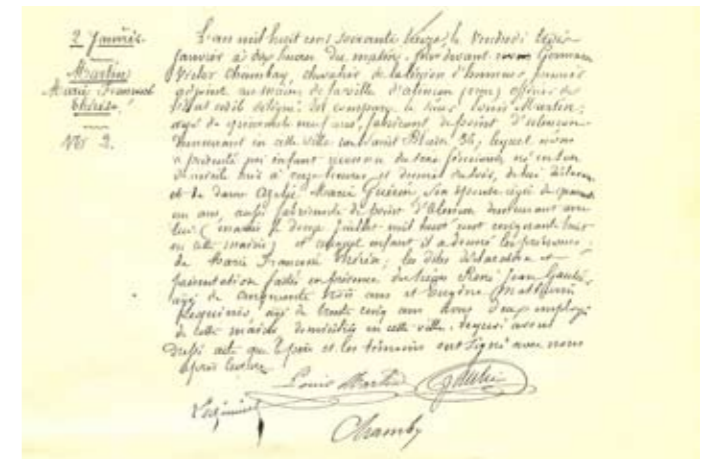 2 Janvier
Martin
Marie Françoise
Thérèse
No 2.
L'an mil huit cent soixante treize, le Vendredi trois
Janvier à dix heures du matin, par devant nous Germain
Victor Chambay, chevalier de la légion d'honneur, premier
adjoint au maire de la ville d'Alençon (orne) officier de
l'état civil délégué. Est comparu le sieur Louis Martin,
âgé de quarante neuf ans, fabricant de point d'alençon
demeurant en cette ville rue Saint Blaise 36, lequel nous
a présenté un enfant reconnu du sexe féminin né en son
domicile hier à onze heures et demie du soir, de lui déclarant
et de dame Azélie Marie Guérin son épouse âgée de quarante
un ans, aussi fabricante de point d'Alençon demeurant avec
lui (mariés le douze juillet mil huit cent cinquante huit
en cette mairie) et auquel enfant il a donné les prénoms
de Marie Françoise Thérèse; les dites déclaration et
présentation faites en présence des sieurs René Jean
âgé de cinquante trois ans et Eugène Mathurin
âgé de trente cinq ans tous deux employés
de cette mairie domiciliés en cette ville. desquels avons
dressé acte que le père et les témoins ont signé avec nous
après lecture.
Louis Martin
Chambay